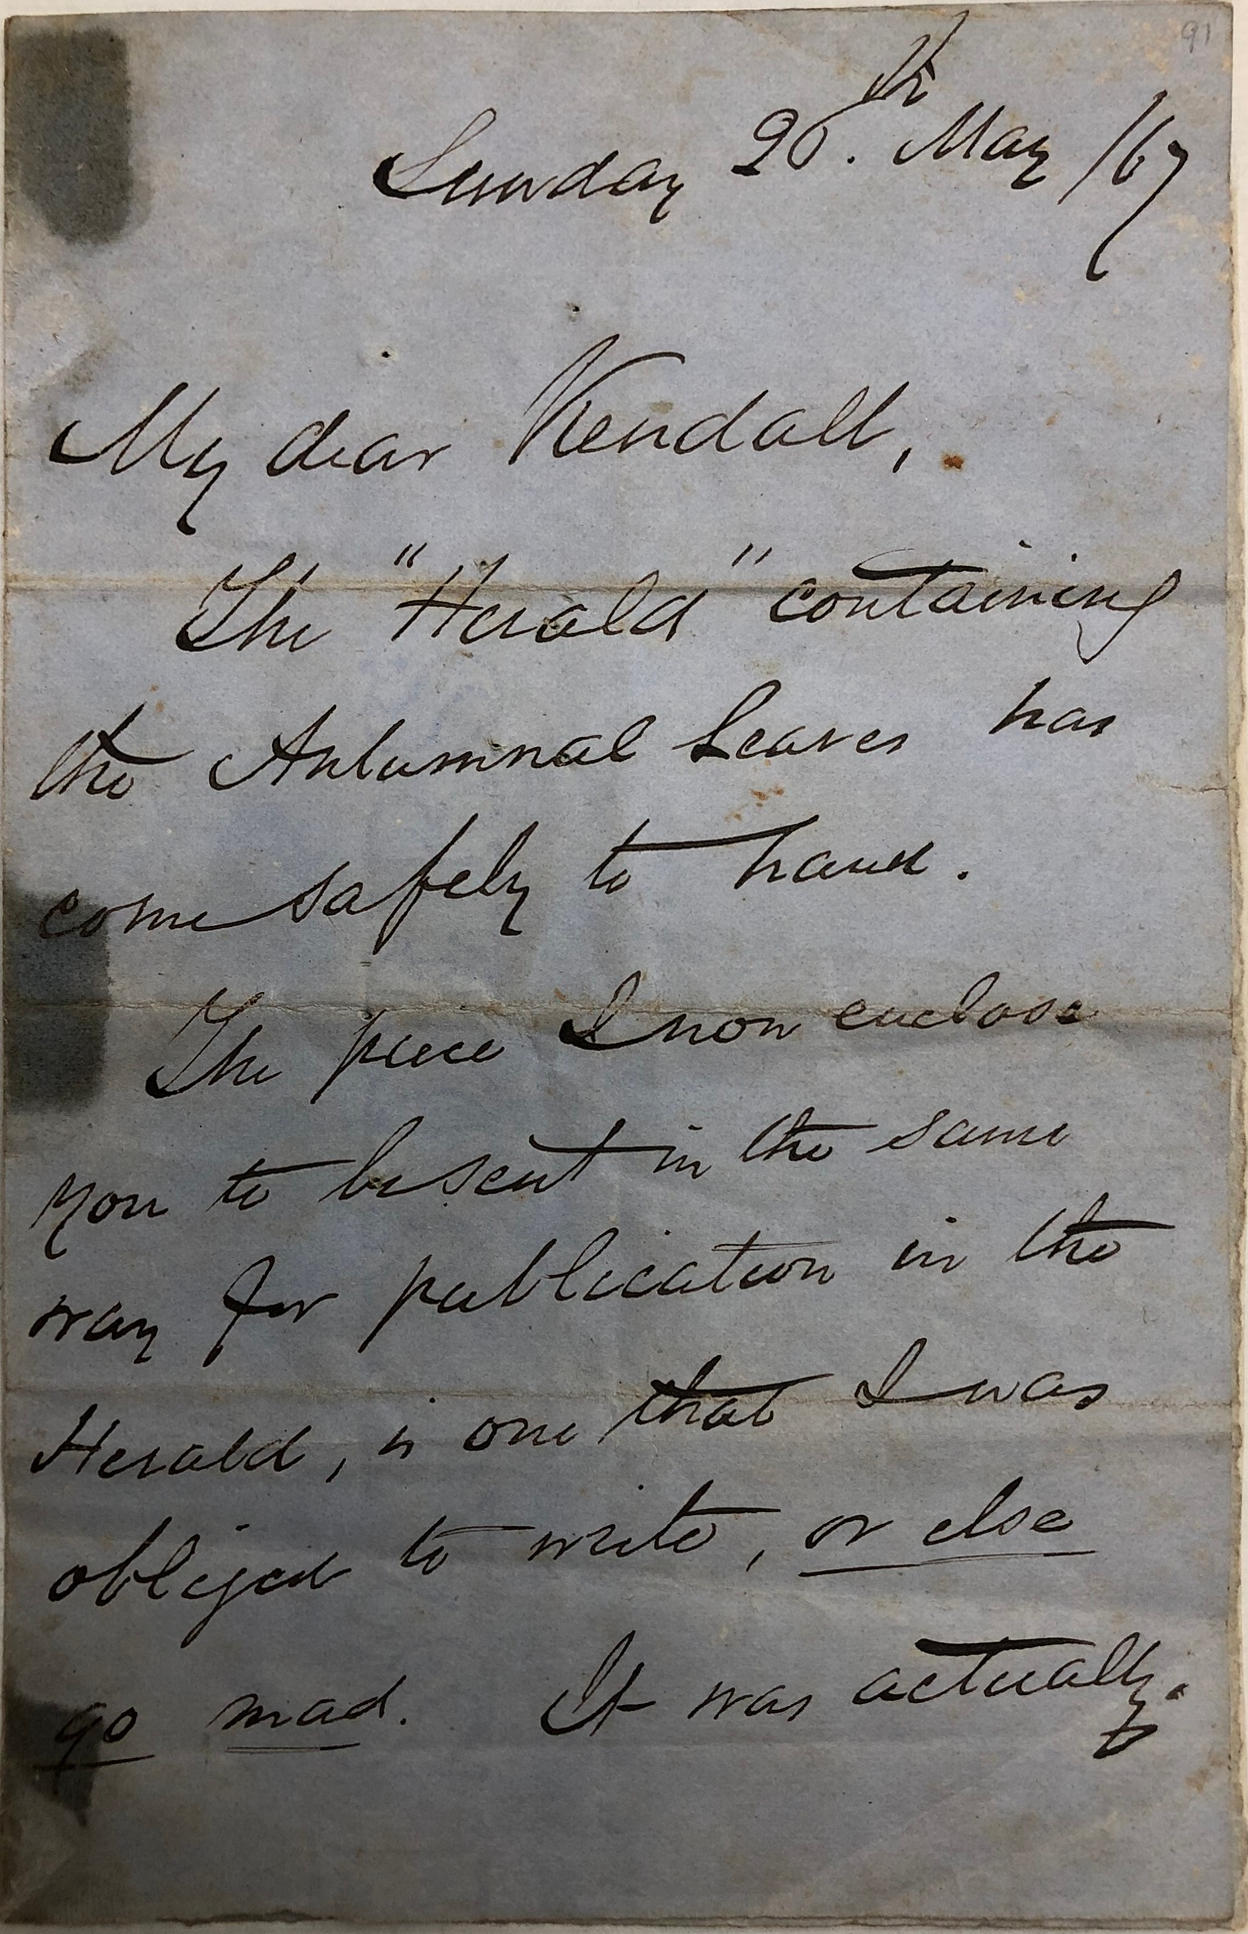 91
Sunday 26th. May /67
My dear Kendall,
The "Herald" containing
the Autumnal Leaves has
come safely to hand.
The piece I now enclose
you to be sent in the same
way for publication in the
Herald, is one that I was
obliged to write, or else
go mad. It was actually